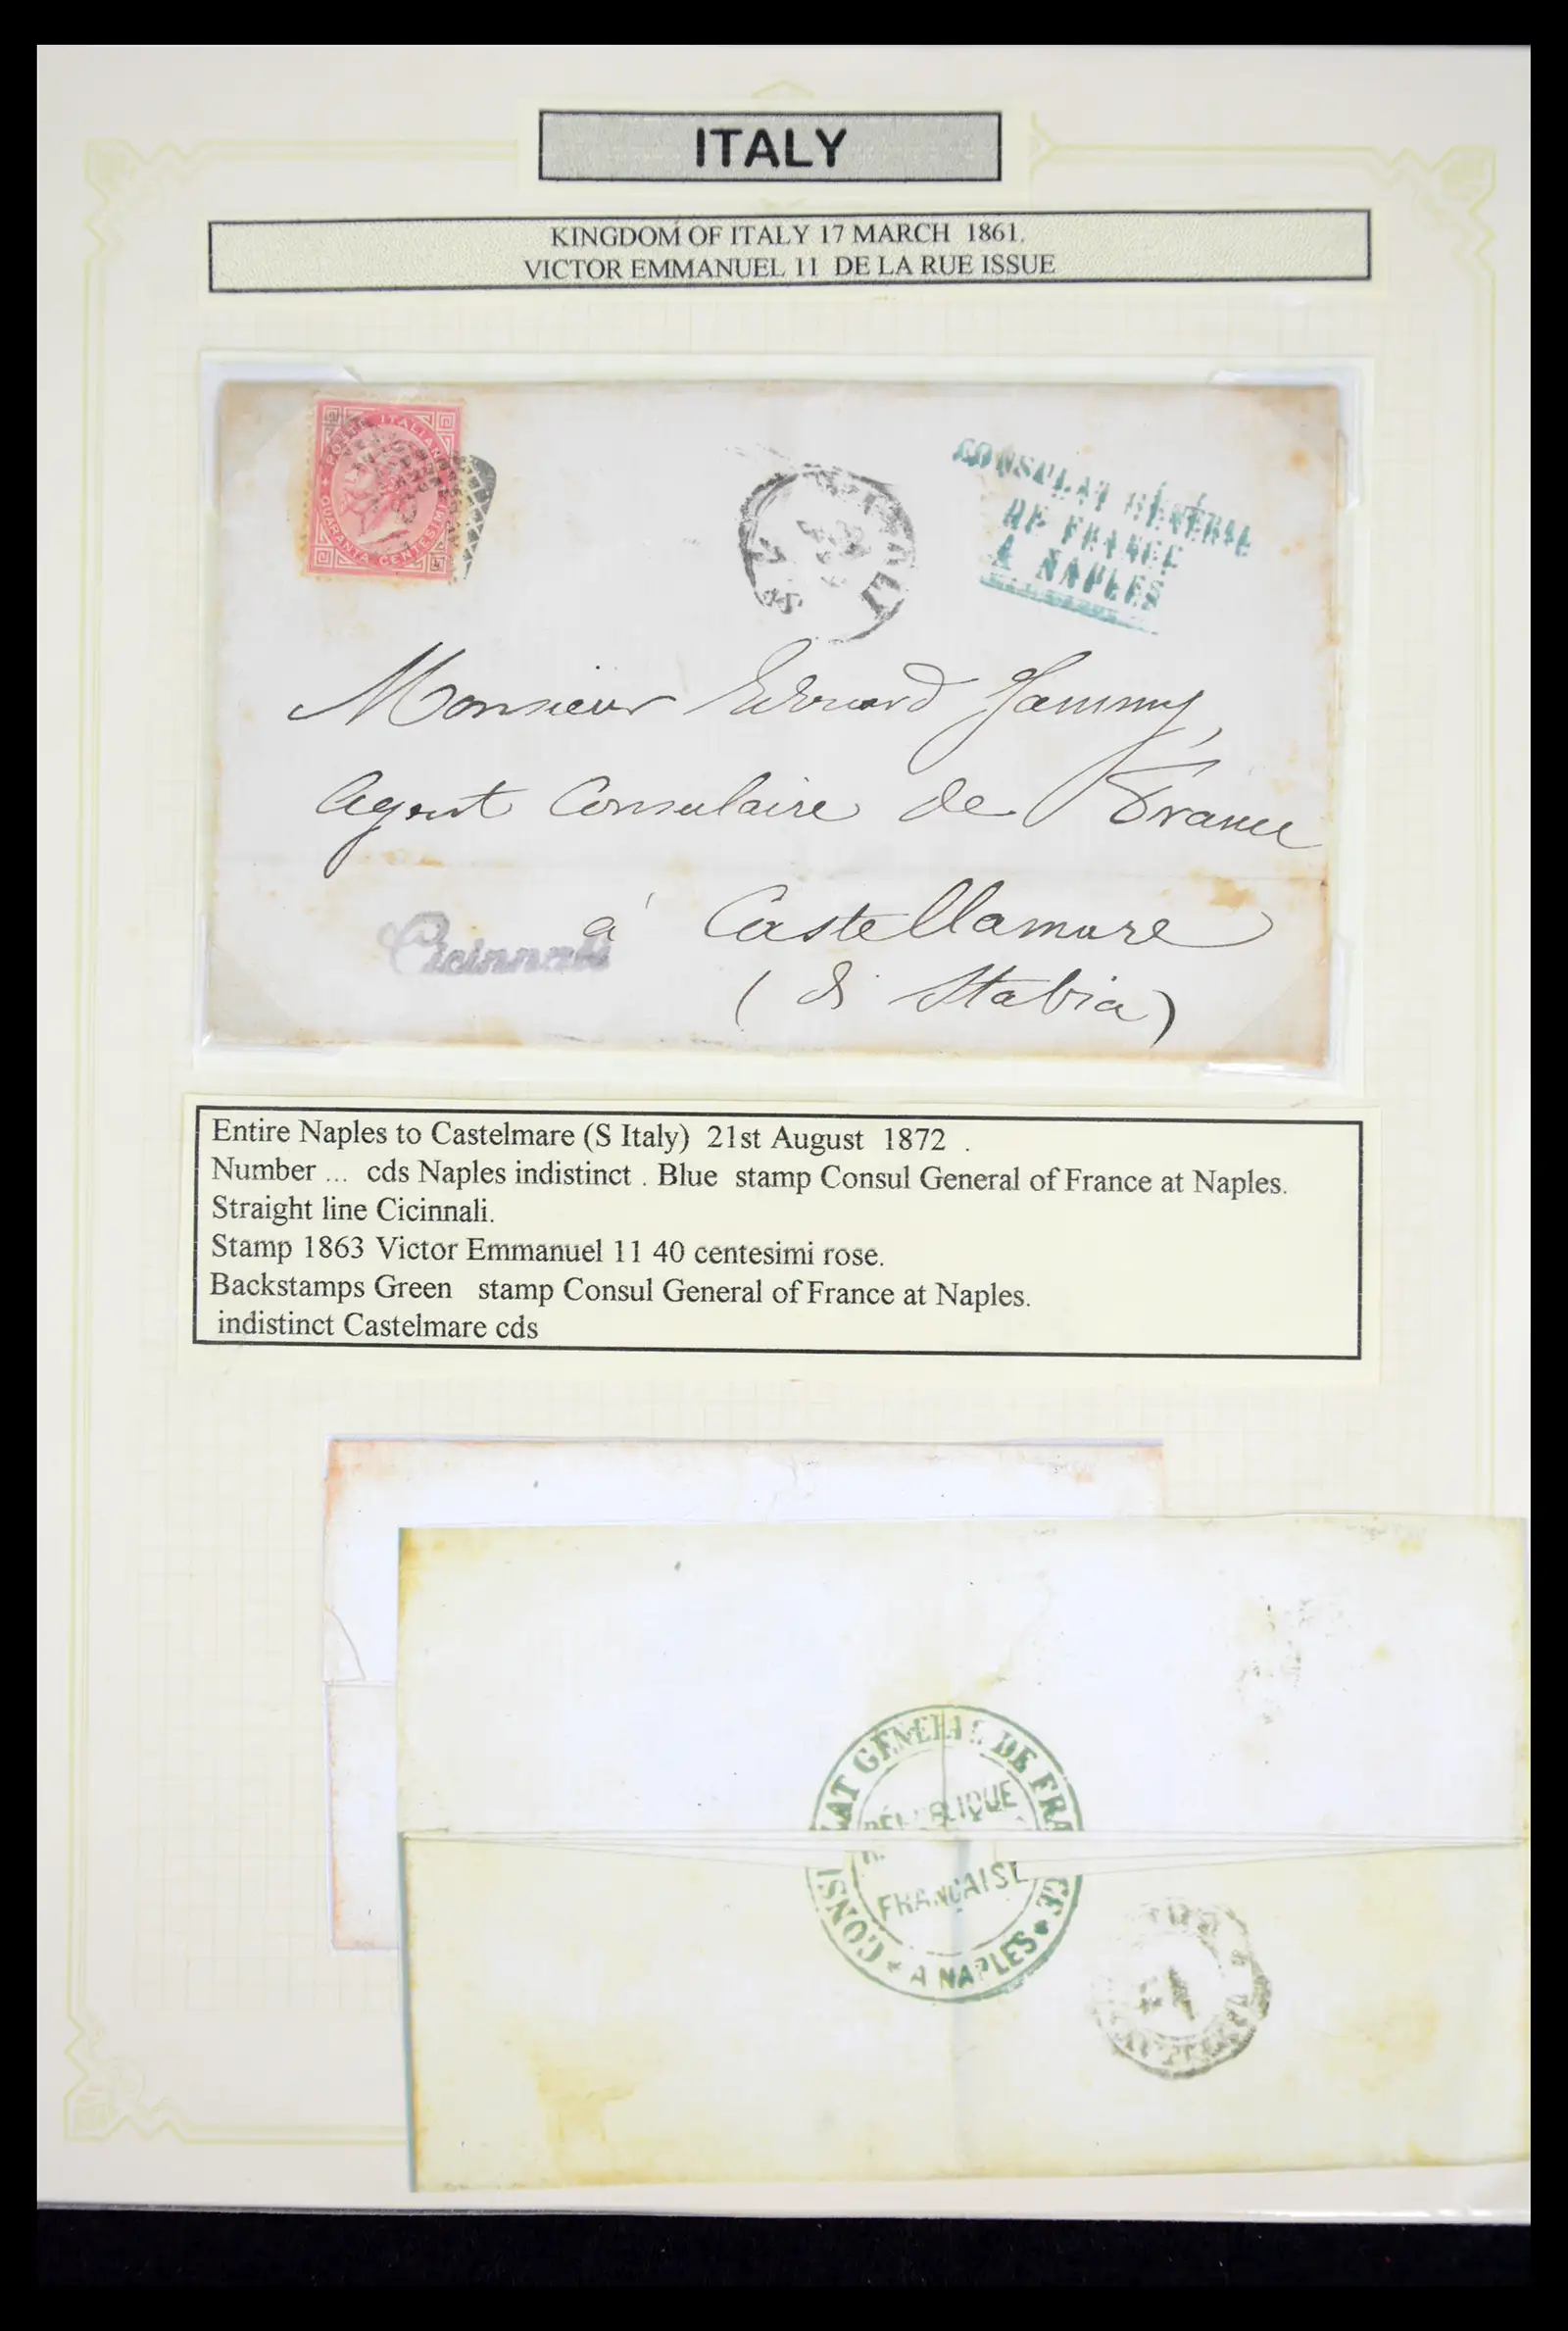 ITALY
KINGDOM OF ITALY 17 MARCH 1861.
VICTOR EMMANUEL 11 DE LA RUE ISSUE
POSTE ITALIANE
QUARANTA CENTESIMI
CONSULAT GÉNÉRAL
DE FRANCE
A NAPLES
Monsieur Edouard
Agent Consulaire de France
à Castellamare
(di Stabia)
Cicinnali
Entire Naples to Castelmare (S Italy) 21st August 1872 .
Number ... cds Naples indistinct . Blue stamp Consul General of France at Naples.
Straight line Cicinnali.
Stamp 1863 Victor Emmanuel 11 40 centesimi rose.
Backstamps Green stamp Consul General of France at Naples.
indistinct Castelmare cds
CONSULAT GÉNÉRAL DE FRANCE
RÉPUBLIQUE
FRANÇAISE
* A NAPLES *